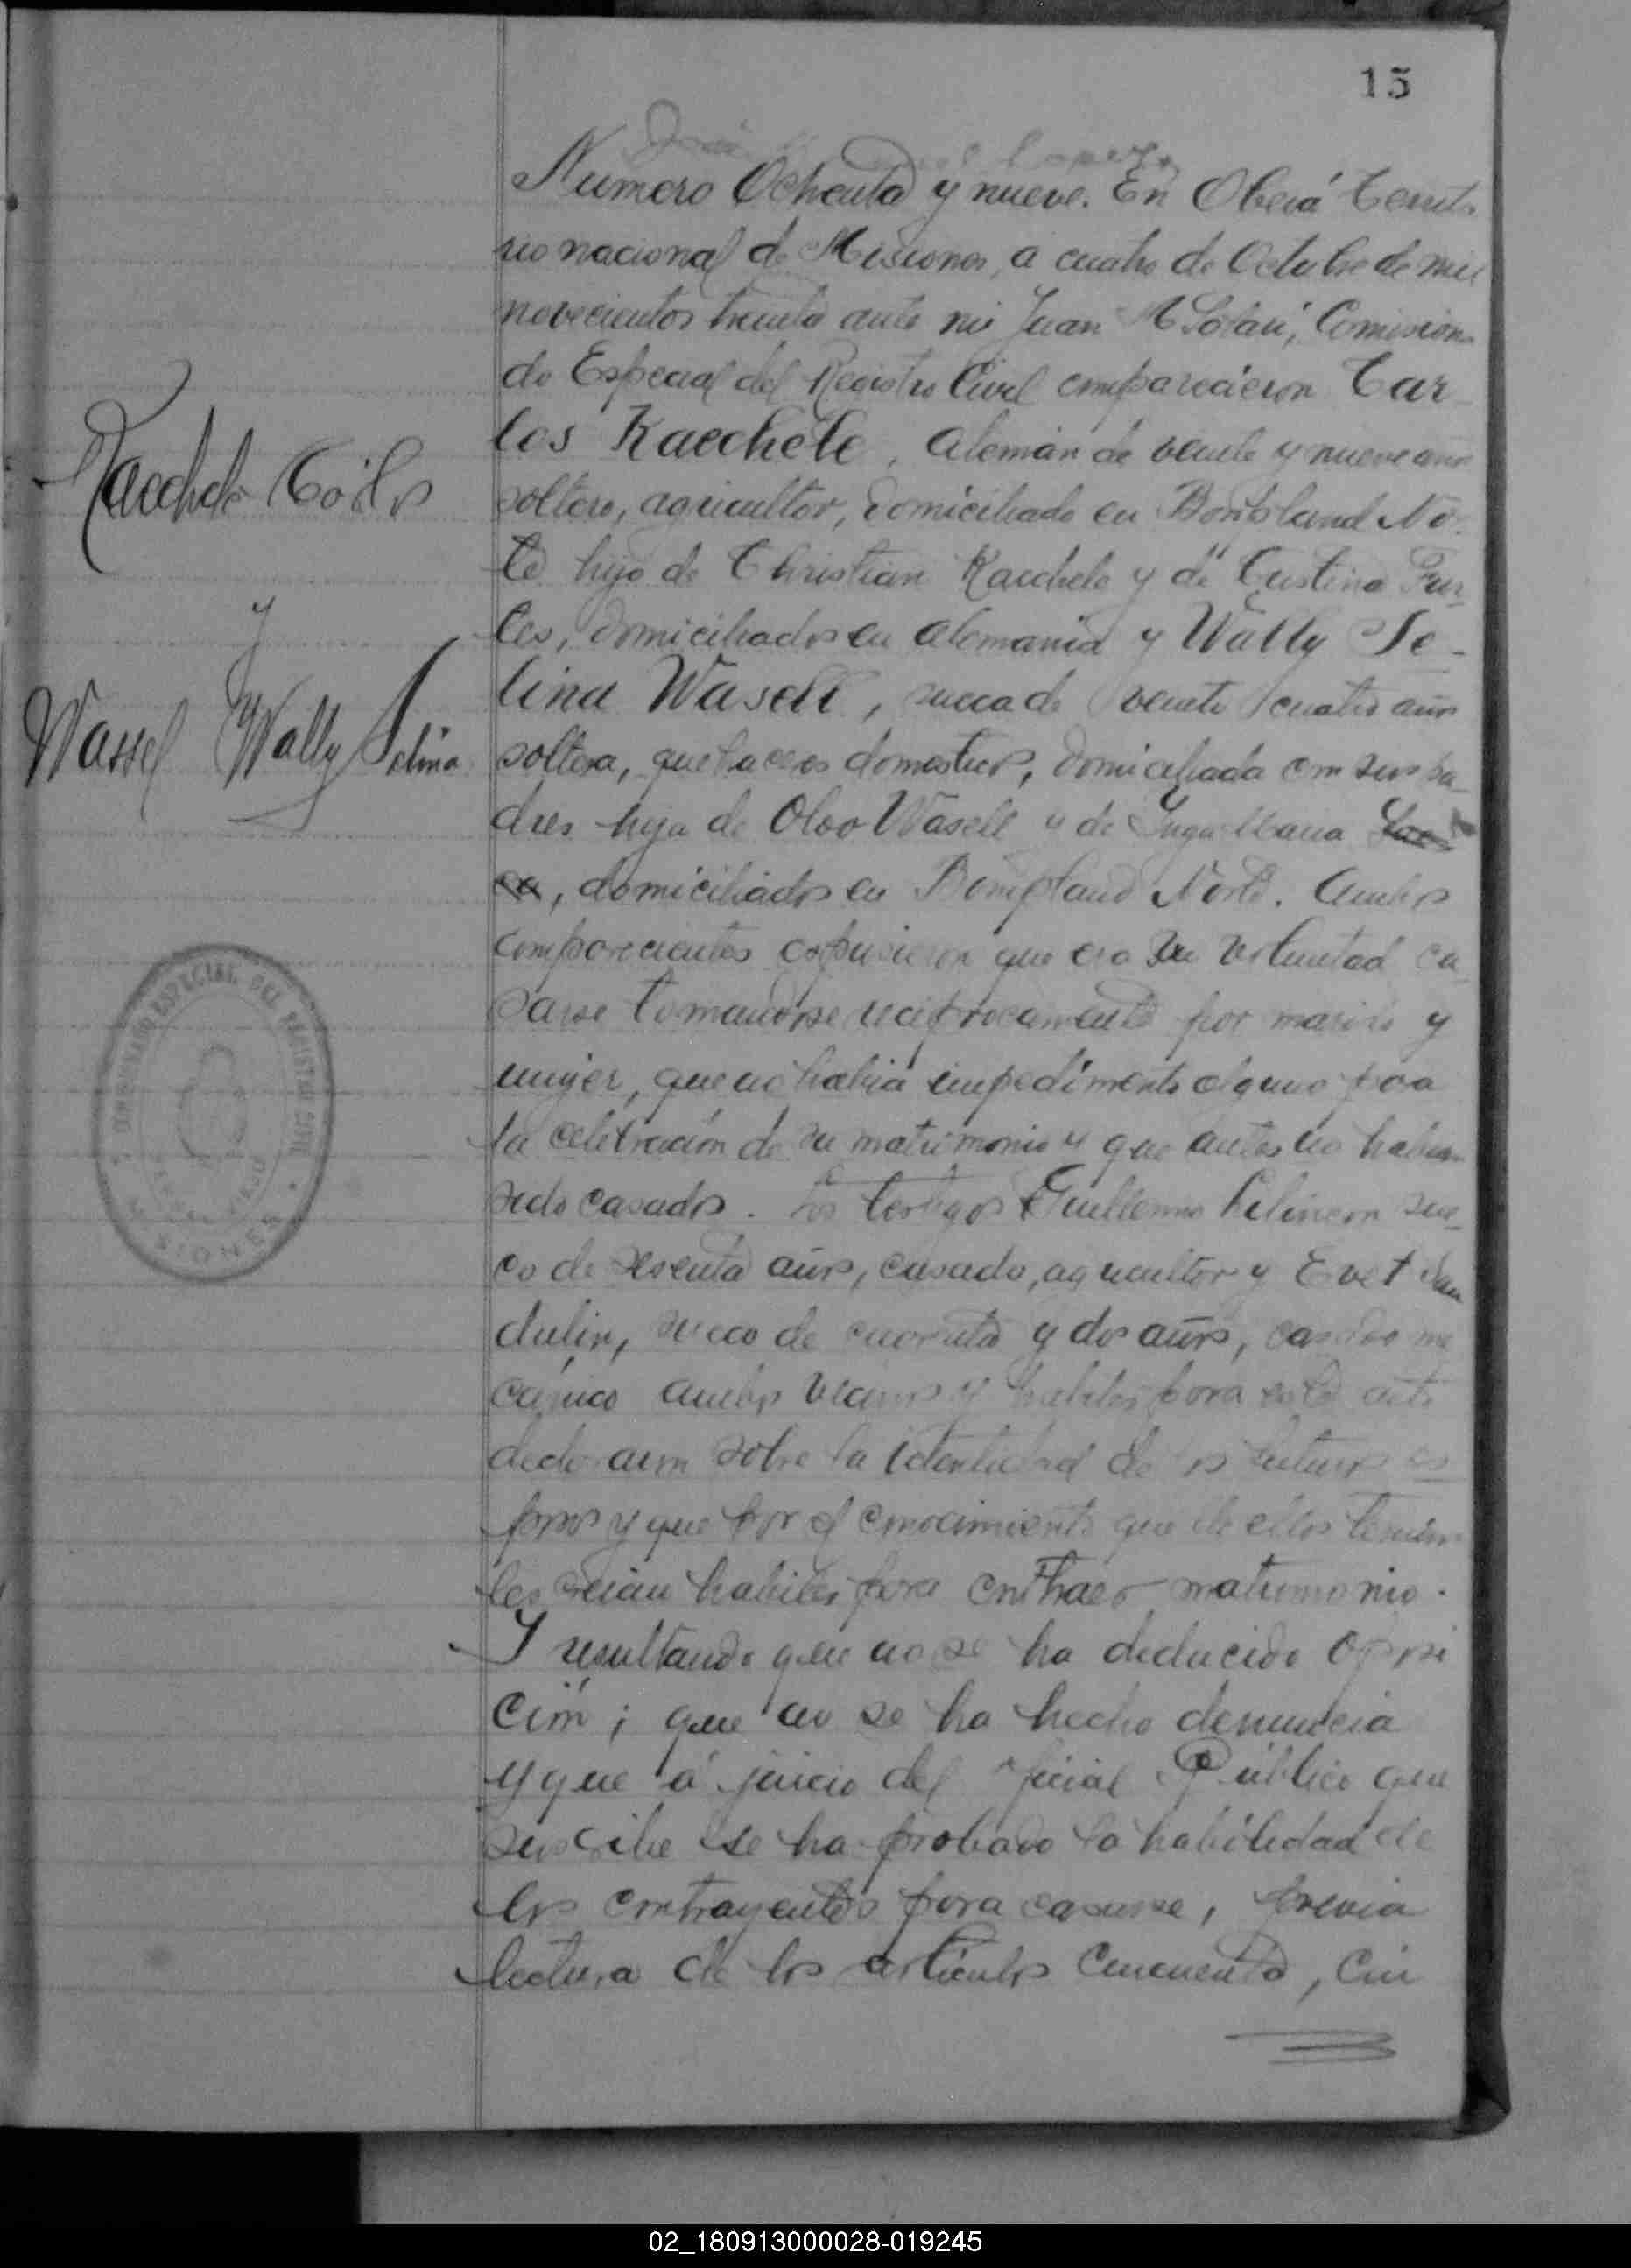 15
Numero Ochenta y nueve. En Oberá Territo
rio nacional de Misiones, a cuatro de Octubre de mil
novecientos treinta ante mi Juan Comisiona
do Especial del Registro Civil comparecieron Car
los Kaechele, alemán de veinte y nueve años
soltero, agricultor, domiciliado en Bonpland Nor
te hijo de Christian Kaechele y de Cristina
domiciliados en Alemania y Wally Se-
lina Wasell, sueca de veinte cuatro años
soltera, quehaceres domesticos, domiciliada con sus pa
dres hija de Olov Wasell y de Inga Maria
domiciliados en Bompland Norte. Ambos
comparecientes expusieron que era su voluntad ca
sarse tomandose reciprocamente por marido y
mujer, que no habia impedimento alguno para
la celebración de su matrimonio y que antes no habian
sido casados. Los testigos Guillermo sue
co de sesenta años, casado, agricultor y Evet San
dulin, sueco de cuarenta y dos años, casado me
cánico ambos vecinos y habiles para este acto
declararon sobre la identidad de los futuros es
posos y que por el conocimiento que de ellos tenian
les creian habiles para contraer matrimonio.
Y resultando que no se ha deducido oposi
ción; que no se ha hecho denuncia
y que á juicio del oficial Público que
suscribe se ha probado la habilidad de
los contrayentes para casarse, previa
lectura de los articulos cincuenta, cin
Kaechele Carlos
y
Wassel Wally Selina
COMISIONADO ESPECIAL DEL REGISTRO CIVIL
MISIONES
02_180913000028-019245